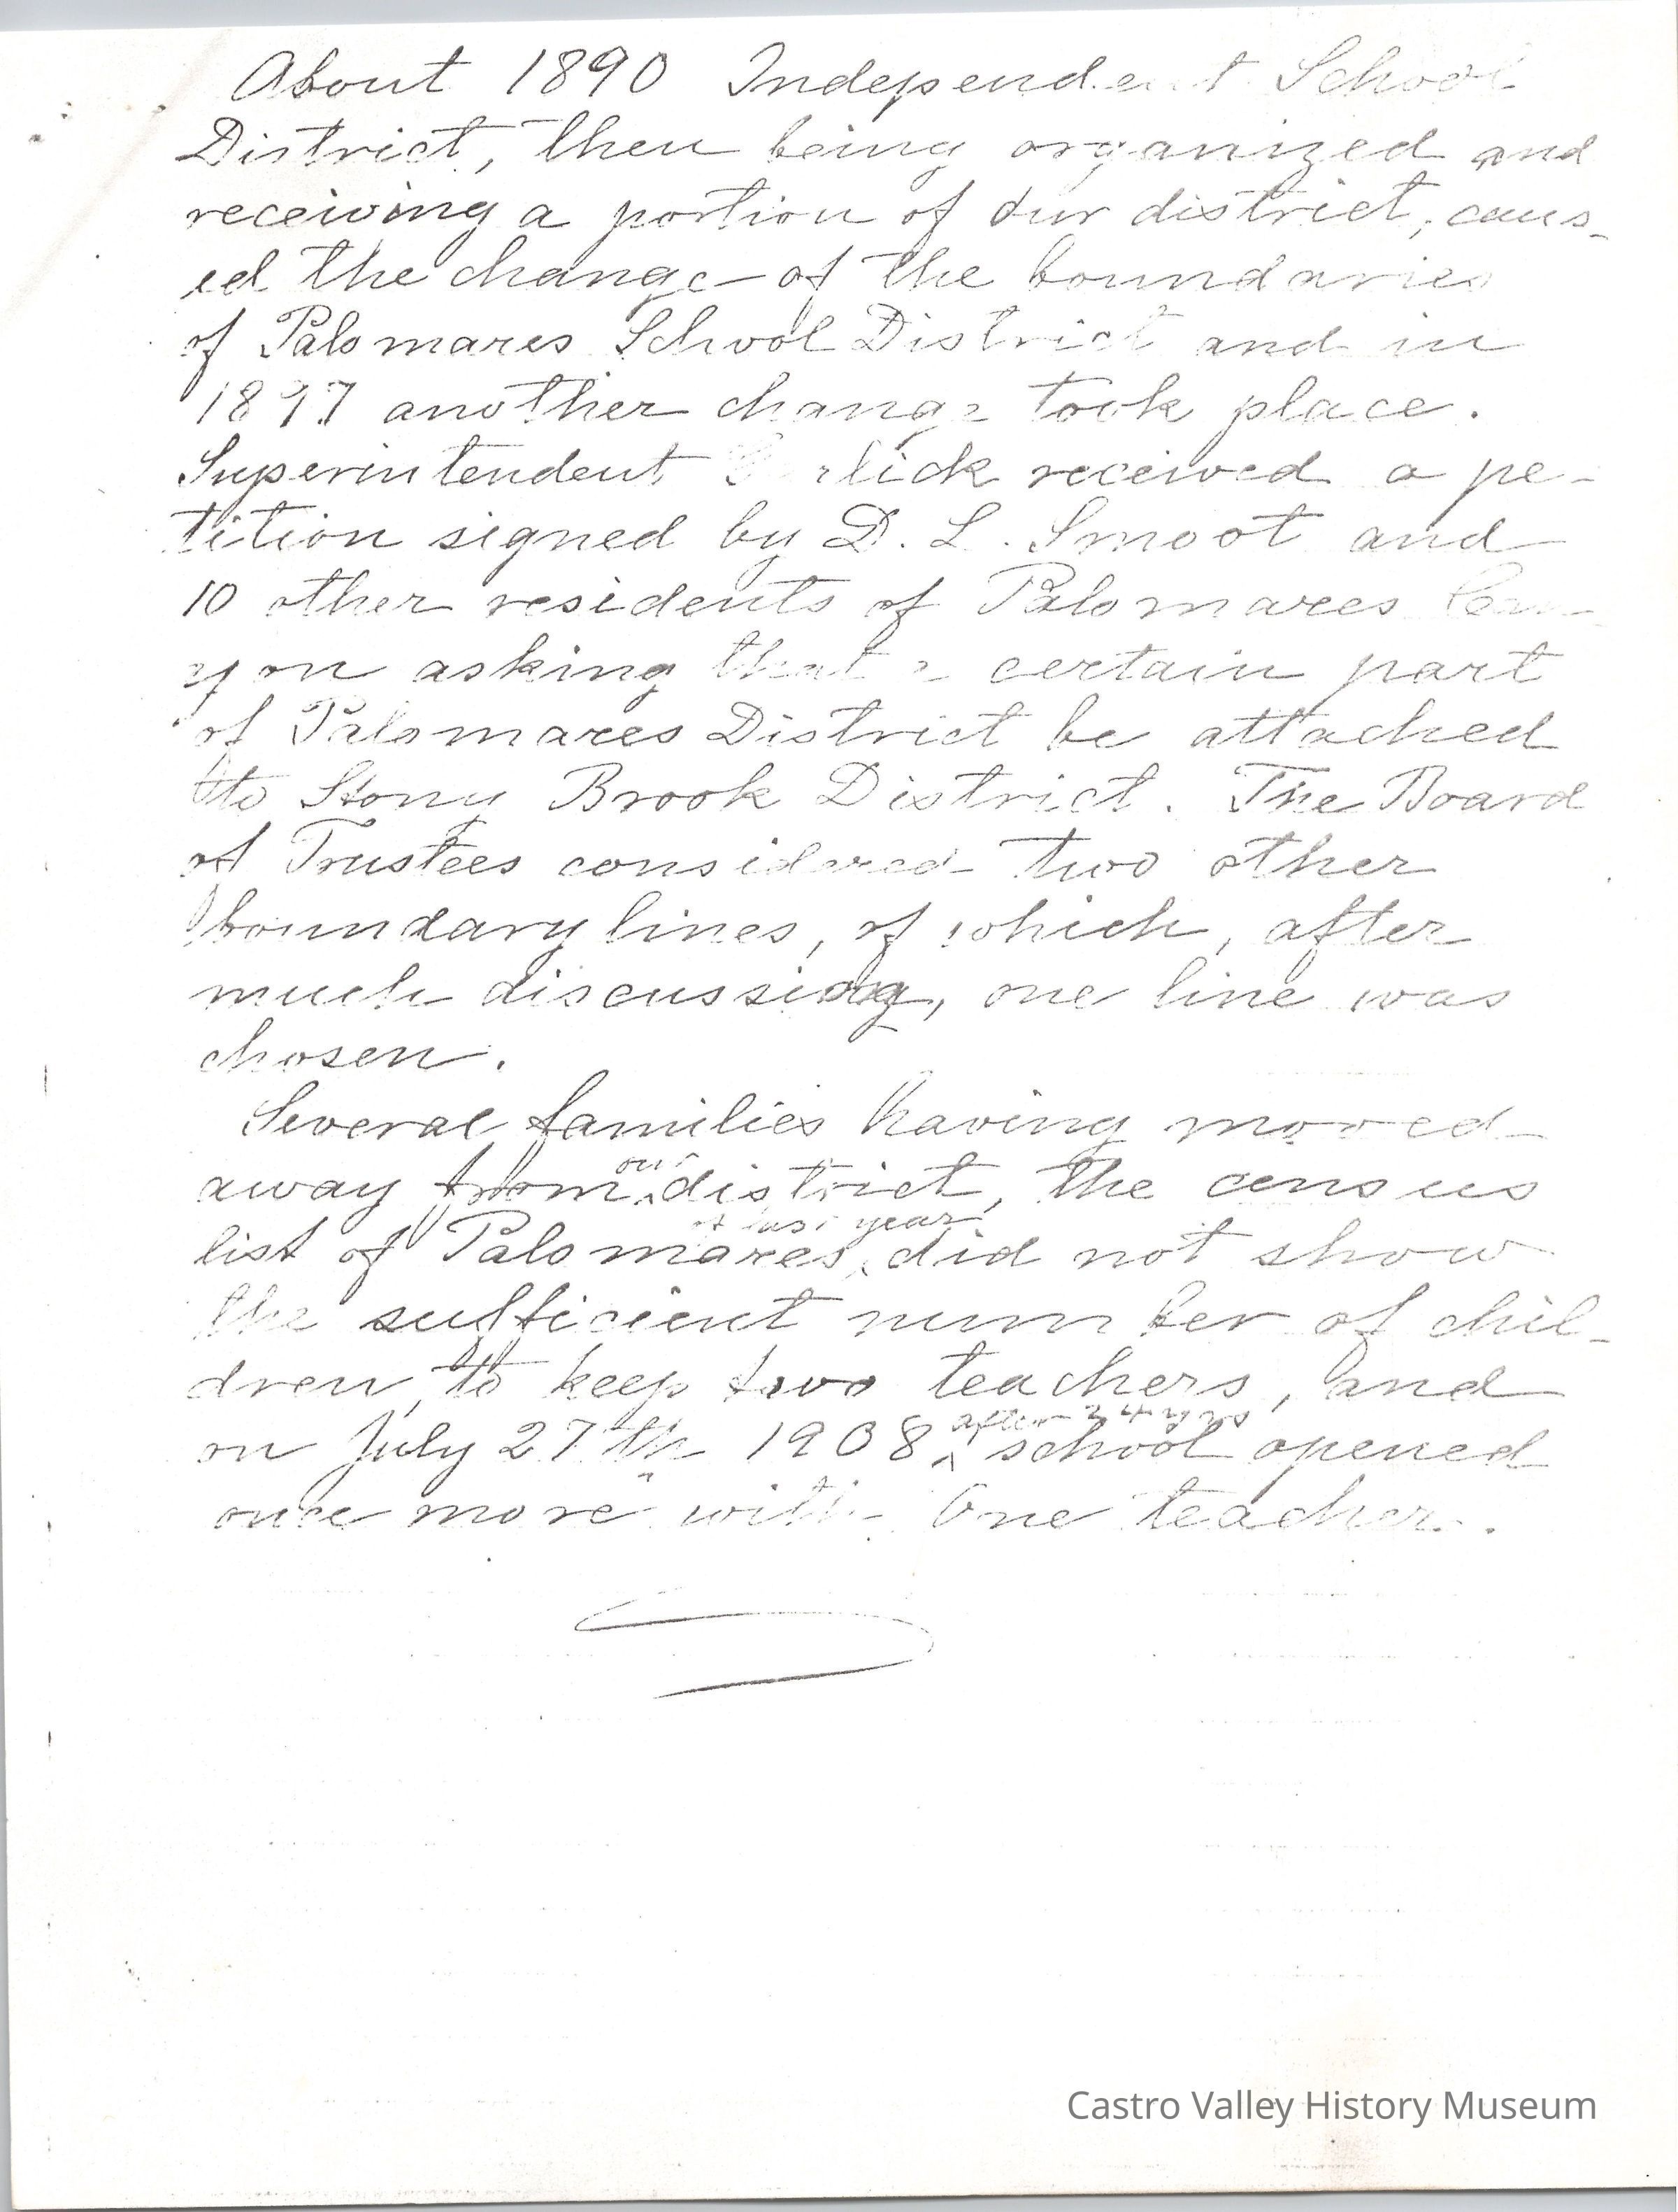 About 1890 Independent School
District, then being organized and
receiving a portion of our district, caus-
ed the change of the boundaries
of Palomares School District and in
1897 another change took place.
Superintendent received a pe-
tition signed by D. L. Smoot and
10 other residents of Palomares Can-
yon asking that a certain part
of Palomares District be attached
to Stony Brook District. The Board
of Trustees considered two other
boundary lines, of which, after
much discussing, one line was
chosen.
Several families having moved
our
away from district, the census
of last year
list of Palomares, did not show
the sufficient number of chil-
dren, to keep two teachers, and
after 24 yrs
on July 27th 1908, school opened
once more with One teacher.
Castro Valley History Museum